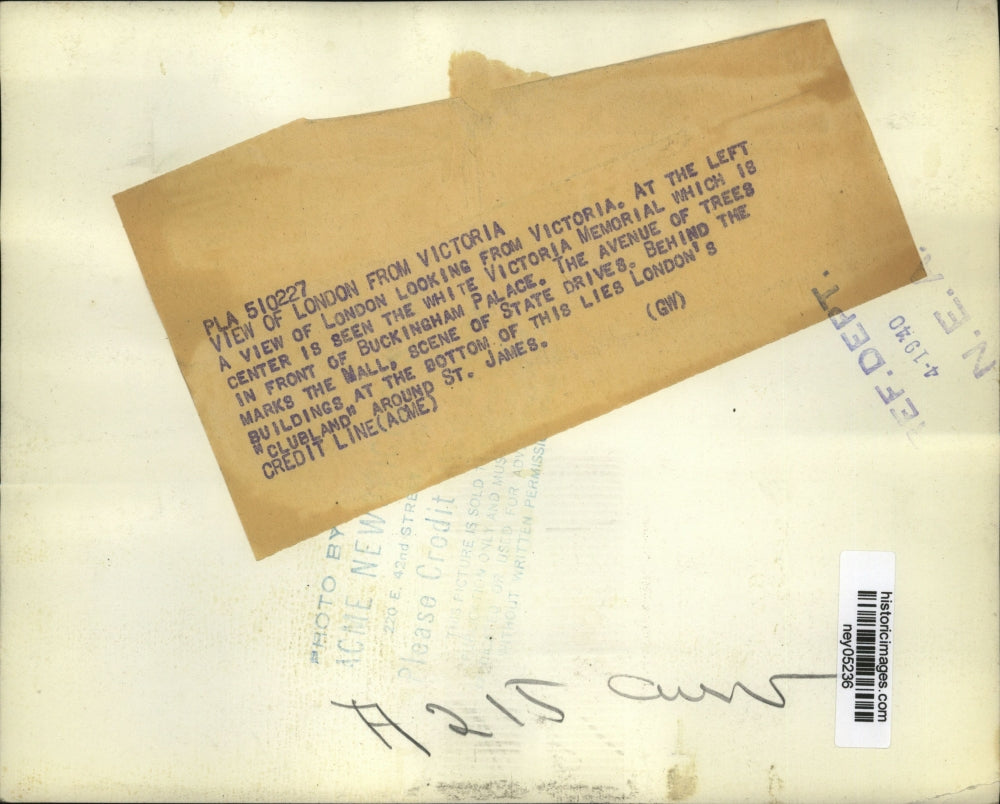 PLA 510227
VIEW OF LONDON FROM VICTORIA
A VIEW OF LONDON LOOKING FROM VICTORIA. AT THE LEFT
CENTER IS SEEN THE WHITE VICTORIA MEMORIAL WHICH IS
IN FRONT OF BUCKINGHAM PALACE. THE AVENUE OF TREES
MARKS THE MALL, SCENE OF STATE DRIVES. BEHIND THE
BUILDINGS AT THE BOTTOM OF THIS LIES LONDON'S
"CLUBLAND" AROUND ST. JAMES.
(GW)
CREDIT LINE(ACME)
REF. DEPT.
4-1940
N. E. A.
PHOTO BY
ACME NEW
220 E. 42nd STRE
Please Credit
PICTURE IS SOLD
ONLY AND MUS
OR USED FOR ADV
WITHOUT WRITTEN PERMISSI
# 215
historicimages.com
ney05236